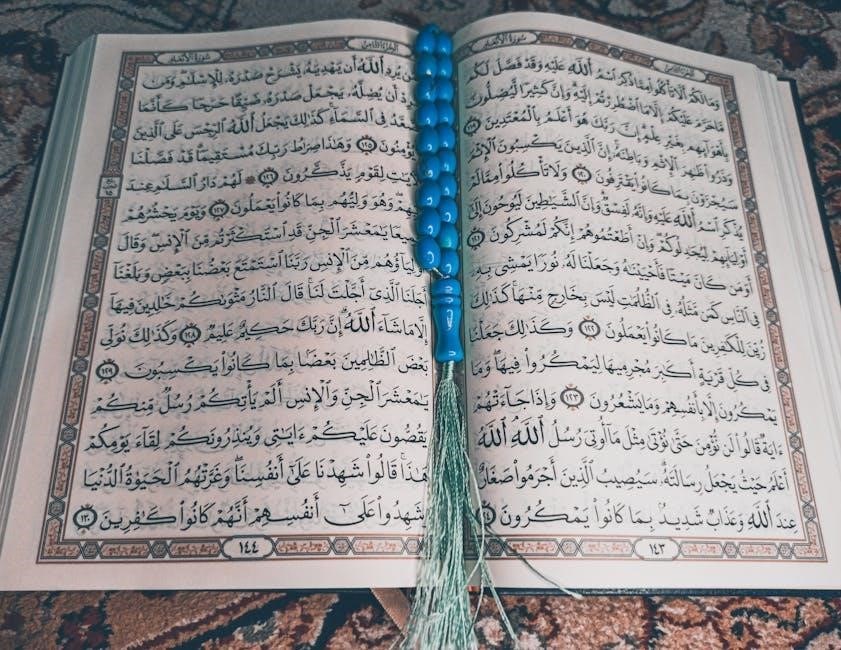 سُورَةُ الأَنْعَامِ
الجُزْءُ الثَّامِنُ
وَمَا لَكُمْ أَلَّا تَأْكُلُوا۟ مِمَّا ذُكِرَ ٱسْمُ ٱللَّهِ عَلَيْهِ وَقَدْ فَصَّلَ لَكُم
مَّا حَرَّمَ عَلَيْكُمْ إِلَّا مَا ٱضْطُرِرْتُمْ إِلَيْهِ وَإِنَّ كَثِيرًا لَّيُضِلُّونَ
بِأَهْوَآئِهِم بِغَيْرِ عِلْمٍ إِنَّ رَبَّكَ هُوَ أَعْلَمُ بِٱلْمُعْتَدِينَ ١١٩
وَذَرُوا۟ ظَٰهِرَ ٱلْإِثْمِ وَبَاطِنَهُۥٓ إِنَّ ٱلَّذِينَ يَكْسِبُونَ ٱلْإِثْمَ
سَيُجْزَوْنَ بِمَا كَانُوا۟ يَقْتَرِفُونَ ١٢٠ وَلَا تَأْكُلُوا۟ مِمَّا لَمْ
يُذْكَرِ ٱسْمُ ٱللَّهِ عَلَيْهِ وَإِنَّهُۥ لَفِسْقٌ وَإِنَّ ٱلشَّيَٰطِينَ لَيُوحُونَ إِلَىٰٓ
أَوْلِيَآئِهِمْ لِيُجَٰدِلُوكُمْ وَإِنْ أَطَعْتُمُوهُمْ إِنَّكُمْ لَمُشْرِكُونَ ١٢١
أَوَمَن كَانَ مَيْتًا فَأَحْيَيْنَٰهُ وَجَعَلْنَا لَهُۥ نُورًا يَمْشِى بِهِۦ
فِى ٱلنَّاسِ كَمَن مَّثَلُهُۥ فِى ٱلظُّلُمَٰتِ لَيْسَ بِخَارِجٍ مِّنْهَا كَذَٰلِكَ
زُيِّنَ لِلْكَٰفِرِينَ مَا كَانُوا۟ يَعْمَلُونَ ١٢٢ وَكَذَٰلِكَ جَعَلْنَا
فِى كُلِّ قَرْيَةٍ أَكَٰبِرَ مُجْرِمِيهَا لِيَمْكُرُوا۟ فِيهَا وَمَا
يَمْكُرُونَ إِلَّا بِأَنفُسِهِمْ وَمَا يَشْعُرُونَ ١٢٣ وَإِذَا جَآءَتْهُمْ
ءَايَةٌ قَالُوا۟ لَن نُّؤْمِنَ حَتَّىٰ نُؤْتَىٰ مِثْلَ مَآ أُوتِىَ رُسُلُ ٱللَّهِ ٱللَّهُ
أَعْلَمُ حَيْثُ يَجْعَلُ رِسَالَتَهُۥ سَيُصِيبُ ٱلَّذِينَ أَجْرَمُوا۟ صَغَارٌ
عِندَ ٱللَّهِ وَعَذَابٌ شَدِيدٌۢ بِمَا كَانُوا۟ يَمْكُرُونَ
١٤٣
الجُزْءُ الثَّامِنُ
سُورَةُ الأَنْعَامِ
يُرِدِ ٱللَّهُ أَن يَهْدِيَهُۥ يَشْرَحْ صَدْرَهُۥ لِلْإِسْلَٰمِ وَمَن
أَن يُضِلَّهُۥ يَجْعَلْ صَدْرَهُۥ ضَيِّقًا حَرَجًا كَأَنَّمَا
فِى ٱلسَّمَآءِ كَذَٰلِكَ يَجْعَلُ ٱللَّهُ ٱلرِّجْسَ عَلَى ٱلَّذِينَ
يُؤْمِنُونَ ١٢٥ وَهَٰذَا صِرَٰطُ رَبِّكَ مُسْتَقِيمًا قَدْ فَصَّلْنَا
لِقَوْمٍ يَذَّكَّرُونَ ١٢٦ ۞ لَهُمْ دَارُ ٱلسَّلَٰمِ عِندَ
وَهُوَ وَلِيُّهُم بِمَا كَانُوا۟ يَعْمَلُونَ ١٢٧ وَيَوْمَ يَحْشُرُهُمْ
يَٰمَعْشَرَ ٱلْجِنِّ قَدِ ٱسْتَكْثَرْتُم مِّنَ ٱلْإِنسِ وَقَالَ
أَوْلِيَآؤُهُم مِّنَ ٱلْإِنسِ رَبَّنَا ٱسْتَمْتَعَ بَعْضُنَا بِبَعْضٍ وَبَلَغْنَآ
أَجَلَنَا ٱلَّذِىٓ أَجَّلْتَ لَنَا قَالَ ٱلنَّارُ مَثْوَىٰكُمْ خَٰلِدِينَ فِيهَآ
إِلَّا مَا شَآءَ ٱللَّهُ إِنَّ رَبَّكَ حَكِيمٌ عَلِيمٌ ١٢٨ وَكَذَٰلِكَ نُوَلِّى
بَعْضَ ٱلظَّٰلِمِينَ بَعْضًۢا بِمَا كَانُوا۟ يَكْسِبُونَ ١٢٩
يَٰمَعْشَرَ ٱلْجِنِّ وَٱلْإِنسِ أَلَمْ يَأْتِكُمْ رُسُلٌ مِّنكُمْ
يَقُصُّونَ عَلَيْكُمْ ءَايَٰتِى وَيُنذِرُونَكُمْ لِقَآءَ يَوْمِكُمْ
هَٰذَا قَالُوا۟ شَهِدْنَا عَلَىٰٓ أَنفُسِنَا وَغَرَّتْهُمُ ٱلْحَيَوٰةُ ٱلدُّنْيَا
وَشَهِدُوا۟ عَلَىٰٓ أَنفُسِهِمْ أَنَّهُمْ كَانُوا۟ كَٰفِرِينَ ١٣٠
١٤٤